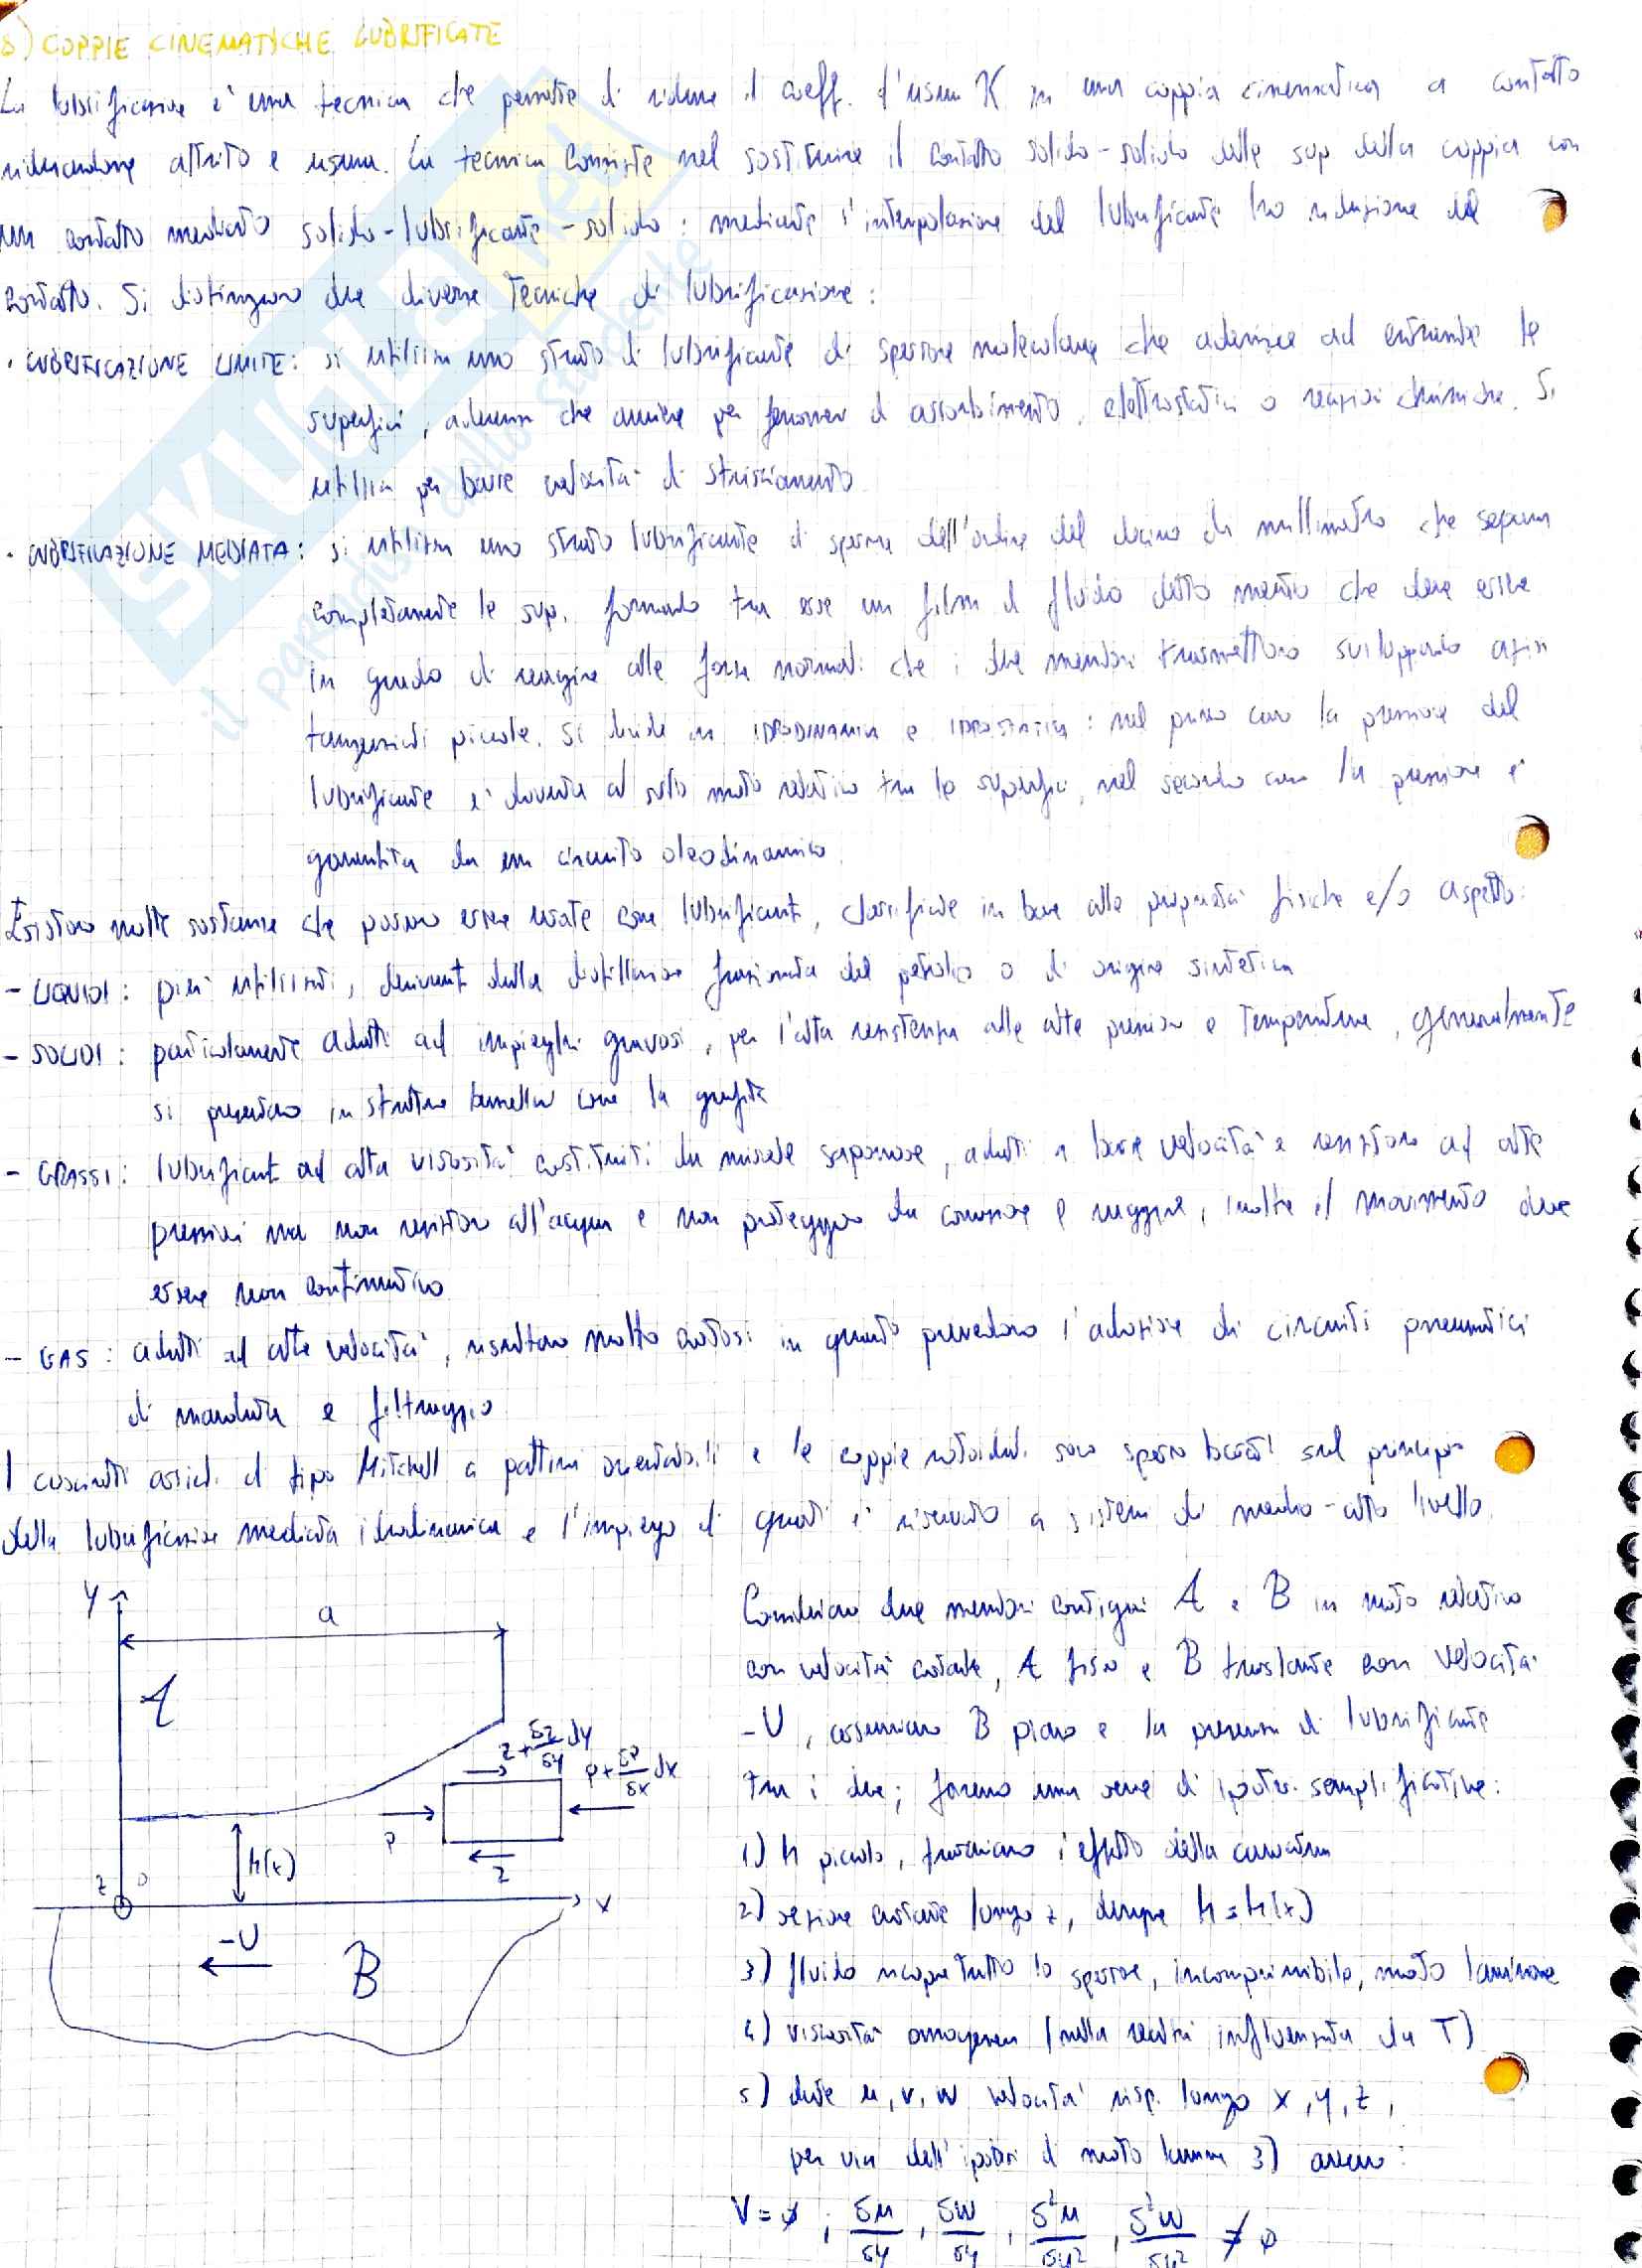 8) COPPIE CINEMATICHE LUBRIFICATE
La lubrificazione è una tecnica che permette di ridurre il coeff. d'usura K in una coppia cinematica a contatto
riducendone attrito e usura. La tecnica consiste nel sostituire il contatto solido-solido delle sup della coppia con
un contatto mediato solido-lubrificante-solido: mediante l'interpolazione del lubrificante ho riduzione del
contatto. Si distinguono due diverse tecniche di lubrificazione:
· LUBRIFICAZIONE LIMITE: si utilizza uno strato di lubrificante di spessore molecolare che aderisce ad entrambe le
superfici, aderenza che avviene per fenomeni di assorbimento, elettrostatici o reazioni chimiche. Si
utilizza per basse velocità di strisciamento
· LUBRIFICAZIONE MEDIATA: si utilizza uno strato lubrificante di spessore dell'ordine del decimo di millimetro che separa
completamente le sup. formando tra esse un film di fluido detto meato che deve essere
in grado di reagire alle forze normali che i due membri trasmettono sviluppando azioni
tangenziali piccole. Si divide in IDRODINAMICA e IDROSTATICA: nel primo caso la pressione del
lubrificante è dovuta al solo moto relativo tra le superfici, nel secondo caso la pressione è
garantita da un circuito oleodinamico.
Esistono molte sostanze che possono essere usate come lubrificanti, classificate in base alle proprietà fisiche e/o aspetto:
- LIQUIDI: più utilizzati, derivanti dalla distillazione frazionata del petrolio o di origine sintetica
- SOLIDI: particolarmente adatti ad impieghi gravosi, per l'alta resistenza alle alte pressioni e temperature, generalmente
si presentano in strutture lamellari come la grafite
- GRASSI: lubrificanti ad alta viscosità costituiti da miscele saponose, adatti a basse velocità e resistono ad alte
pressioni ma non resistono all'acqua e non proteggono da corrosione e ruggine, inoltre il movimento deve
essere non continuativo
- GAS: adatti ad alte velocità, risultano molto costosi in quanto prevedono l'adozione di circuiti pneumatici
di mandata e filtraggio
I cuscinetti assiali di tipo Mitchell a pattini orientabili e le coppie rotoidali sono spesso basati sul principio
della lubrificazione mediata idrodinamica e l'impiego di questi è riservato a sistemi di medio-alto livello.
Consideriamo due membri contigui A e B in moto relativo
con velocità costante, A fisso e B traslante con velocità
-U, assumiamo B piano e la presenza di lubrificante
tra i due; faremo una serie di ipotesi semplificative:
1) h piccolo, trascuriamo l'effetto della curvatura
2) sezione costante lungo z, dunque h = h(x)
3) fluido ricopre tutto lo spessore, incomprimibile, moto laminare
4) viscosità omogenea (nella realtà influenzata da T)
5) date u, v, w velocità risp. lungo x, y, z,
per via dell'ipotesi di moto laminare 3) avremo:
V = ∅ ; δu/δy , δw/δy , δ²u/δy² , δ²w/δy² ≠ ∅
y
a
A
τ + δτ/δy dy
p + δp/δx dx
p
τ
h(x)
z
o
x
-U
B
SKUOLA.net
il paradiso dello studente